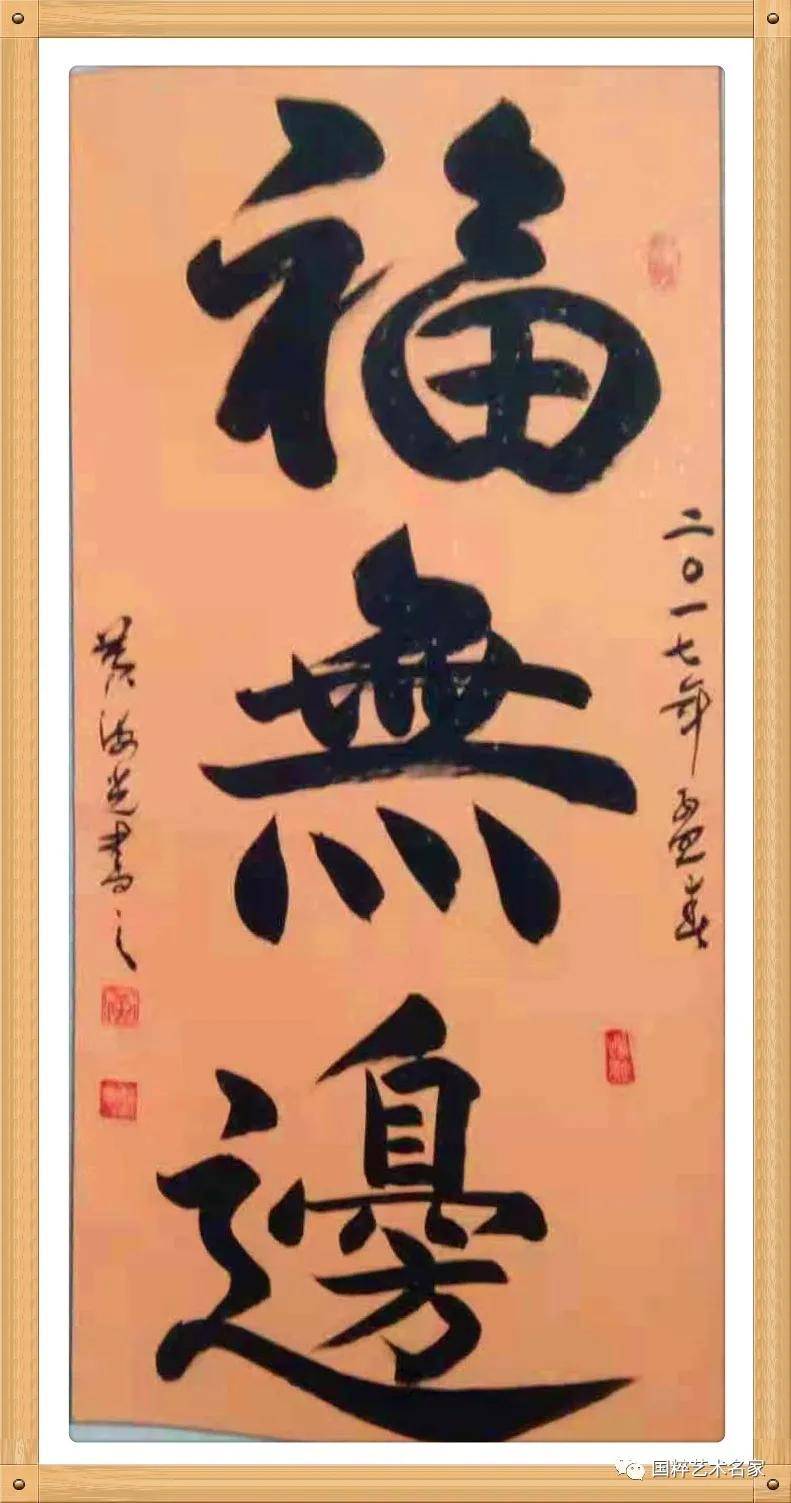 福無邊
二〇一七年孟春
黄海光書之
国粹艺术名家